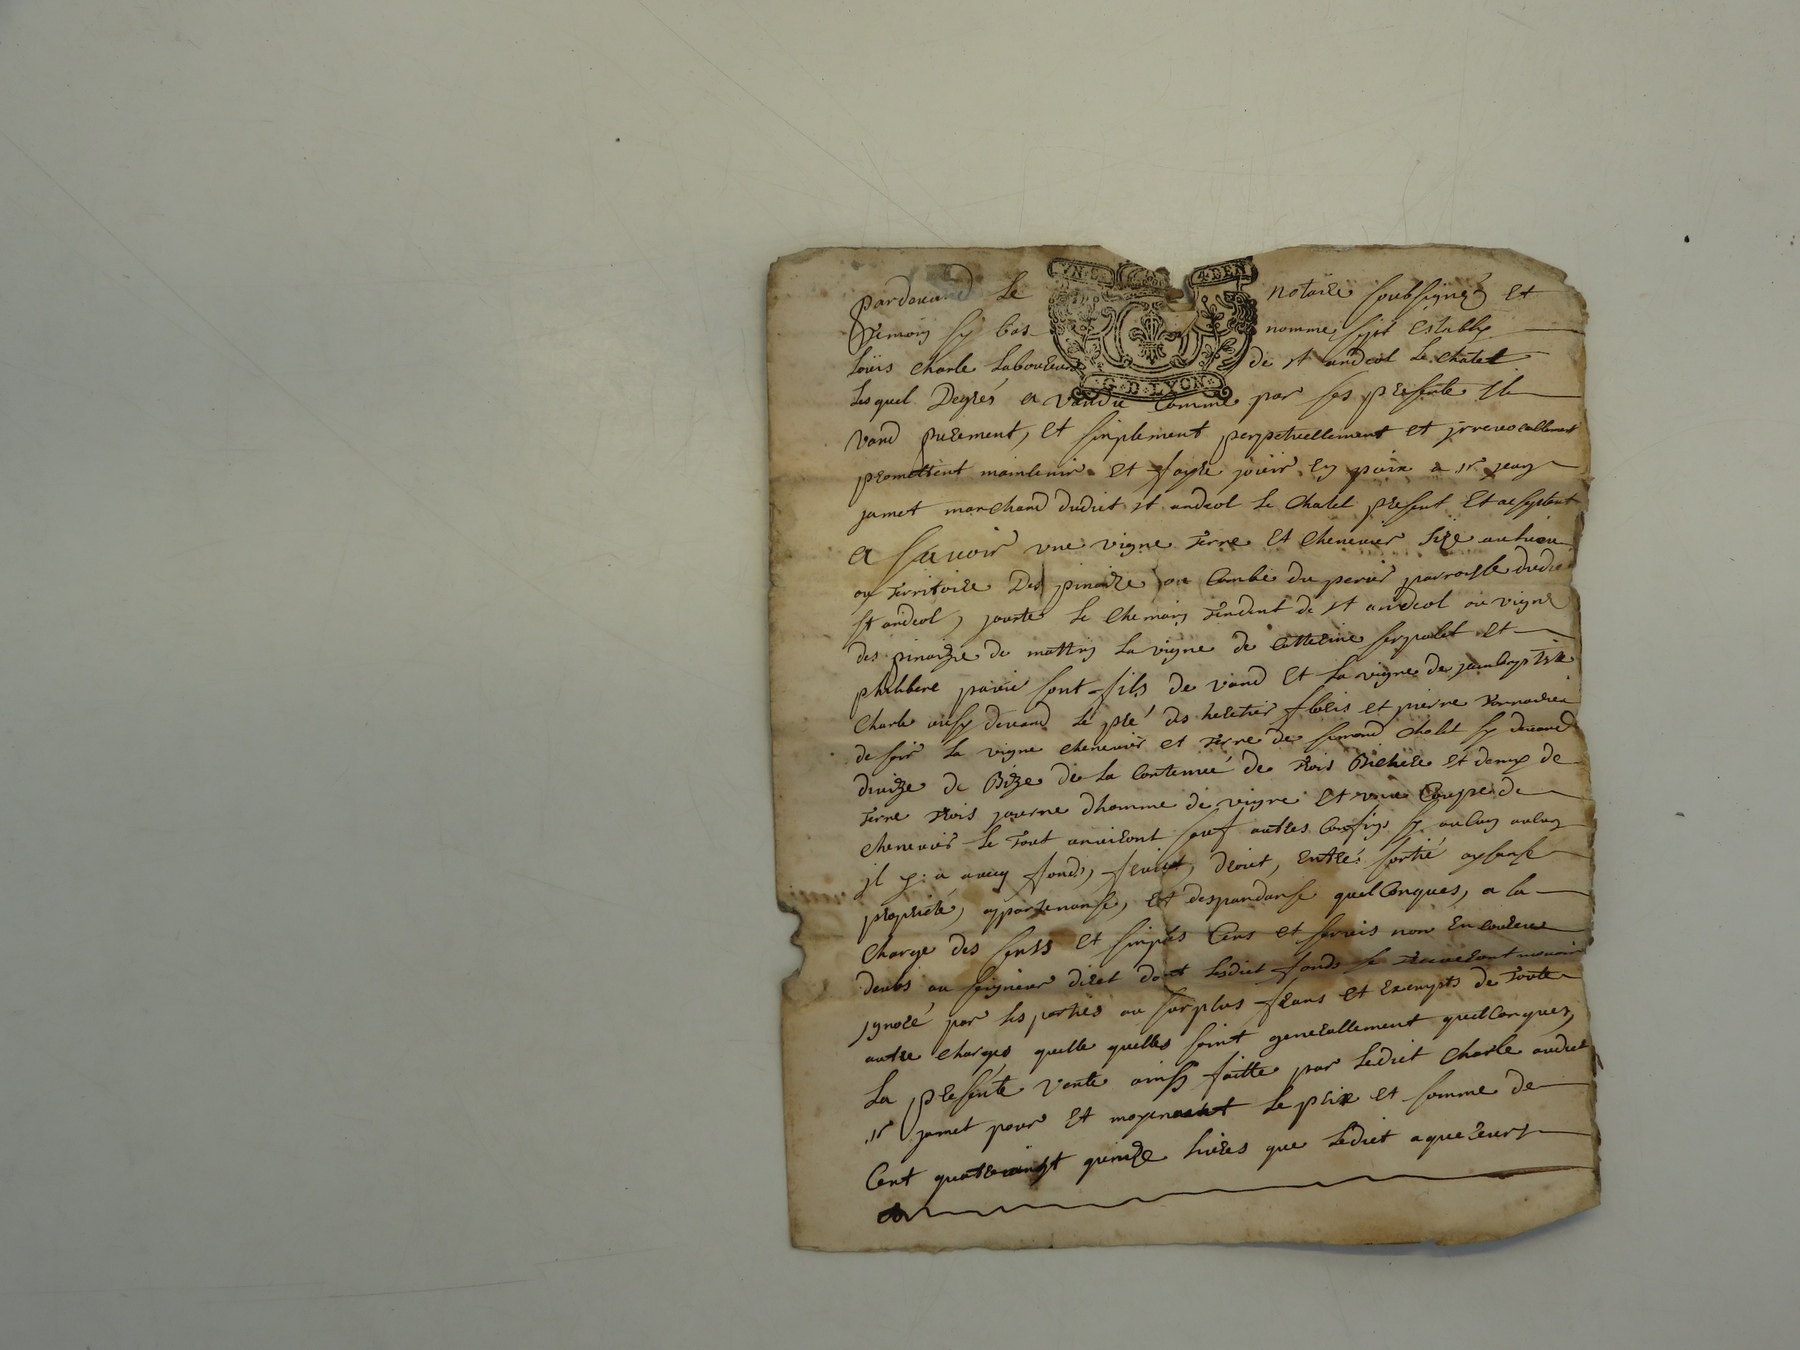 pardevand Le notaire soubsigné et
Temoin sy bas nomme fust establÿ
Loüis charle Laboureur de st andeol Le chatel
Lesquel Degrés a vandu comme par ses presente Il
vand purement, et sinplement perpetuellement et jrrevocallement
promettent maintenir et fayre joüir en paix a sr jean
jamet marchand dudict st andeol Le Chatel present Et aseptent
A sauoir vne vigne Terre et chenevier size au lieu
ou Territoire Des pinaize ou Combe du perier parroisse dudict
st andeol, jouxte Le chemain Tendent de st andeol au vigne
des pinaize de mattin La vigne de catterine serpolet et
philibert pavie sont fils de vand et La vigne de jeanbaptiste
charle aussy devand Le pré des heretier fleuris et pierre
de soir La vigne chenevier et Terre de simond chalet sy devand
divize de Bize de La Contenuë de Trois Bichere et demy de
Terre Trois journe dhomme de vigne et vne Coupe de
chenevier Le Tout anviront sauf autres Confins sy aulcun
jl y: a avecq fonds, fruict, droict, entrés sortié aysanse
proprieté, appartenanse, et despandanse quelConques, a la
Charge des sens et sinples Cens et servis non Encoureus
deubs au seigneur diret dont Lesdict fonds se Treuveront mouvoir
jgnoré par Les parties au surplus frans et Exempts de Toute
autre charges quelle quelles soint generallement quelConques,
La presente vente ainsy faitte par Ledict Charle audict
sr jamet pour et moyenant Le prix et somme de
Cent quatrevingt quinze Livres que Ledict aquereur
G·D·LYON
4·DEN